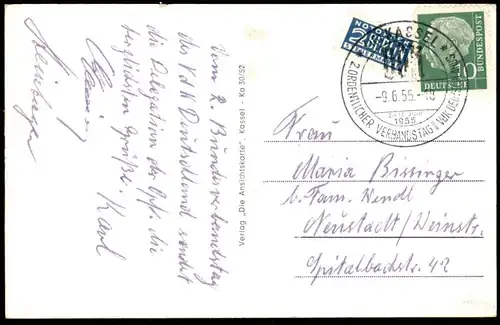 Vom 2. Bundesverbandstag
des VdK Deutschland sendet
die Delegation der Opf. die
herzlichsten Grüße. Karl
Verlag „Die Ansichtskarte“, Kassel - Ka 30/52
NOTOPFER
2 BERLIN
STEUERMARKE
KASSEL
-9.6.55.-
1955
2. ORDENTLICHER VERBANDSTAG VDK
10
DEUTSCHE
BUNDESPOST
Frau
Maria Bissinger
b. Fam. Wendl
Neustadt/Weinstr.
Spitalbachstr. 42